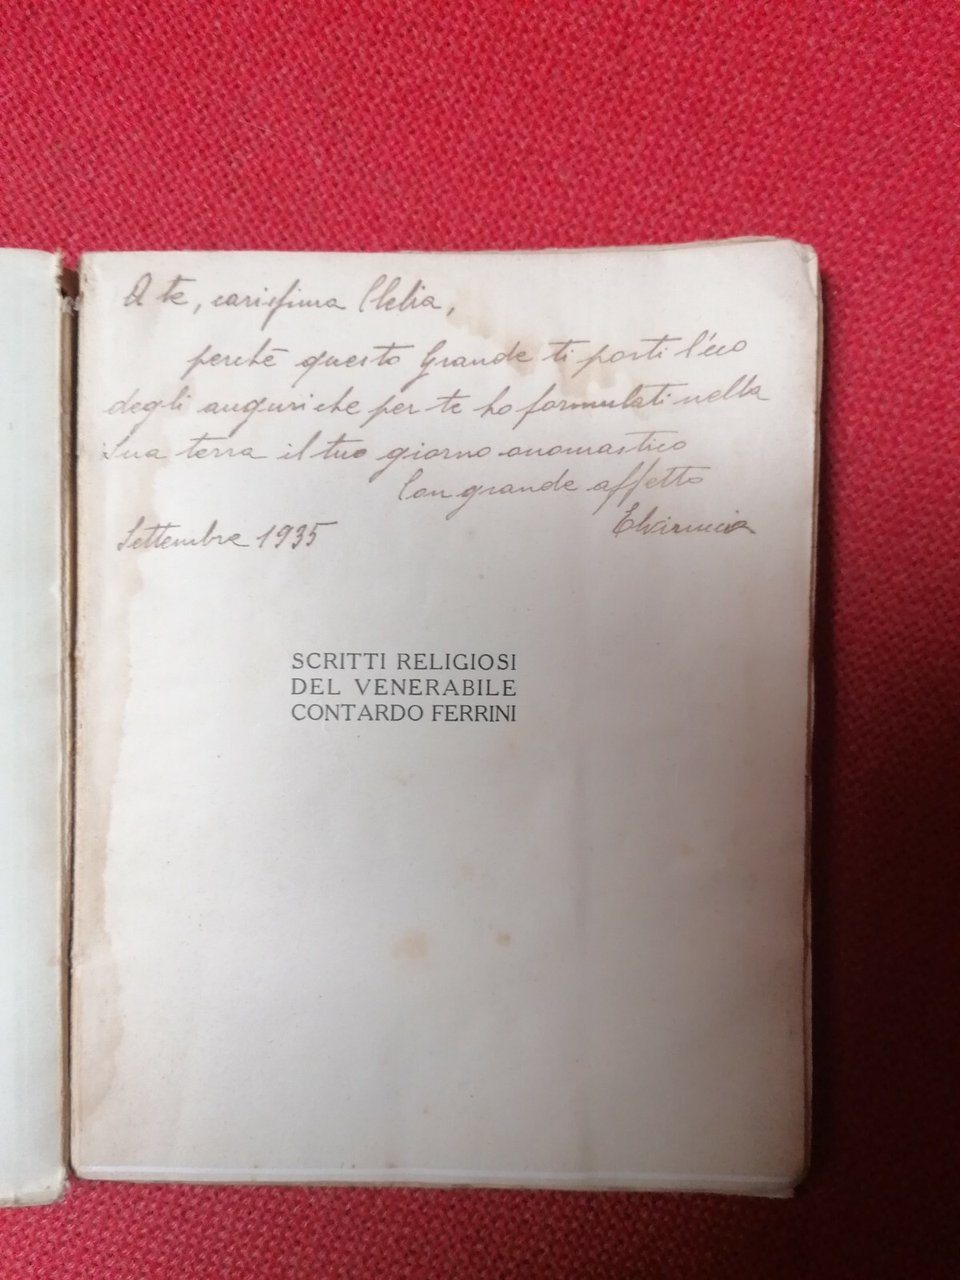 A te, carissima Clelia,
perchè questo Grande ti porti l'eco
degli auguri che per te ho formulati nella
Sua terra il tuo giorno onomastico
Con grande affetto
Settembre 1935
SCRITTI RELIGIOSI
DEL VENERABILE
CONTARDO FERRINI